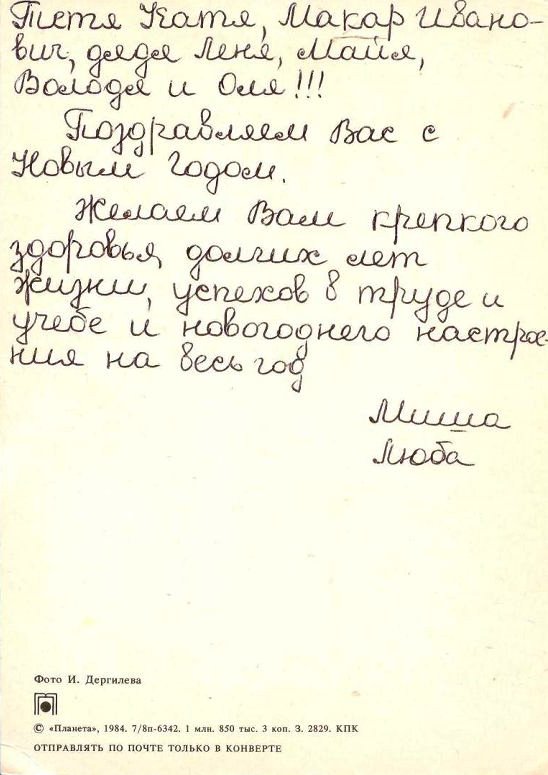 Тетя Катя, Макар Ивано-
вич, дядя Леня, Майя,
Володя и Оля!!!
Поздравляем Вас с
Новым Годом.
Желаем Вам крепкого
здоровья, долгих лет
жизни, успехов в труде и
учебе и новогоднего настрое-
ния на весь год
Миша
Люба
Фото И. Дергилева
© «Планета», 1984. 7/8п-6342. 1 млн. 850 тыс. 3 коп. З. 2829. КПК
ОТПРАВЛЯТЬ ПО ПОЧТЕ ТОЛЬКО В КОНВЕРТЕ